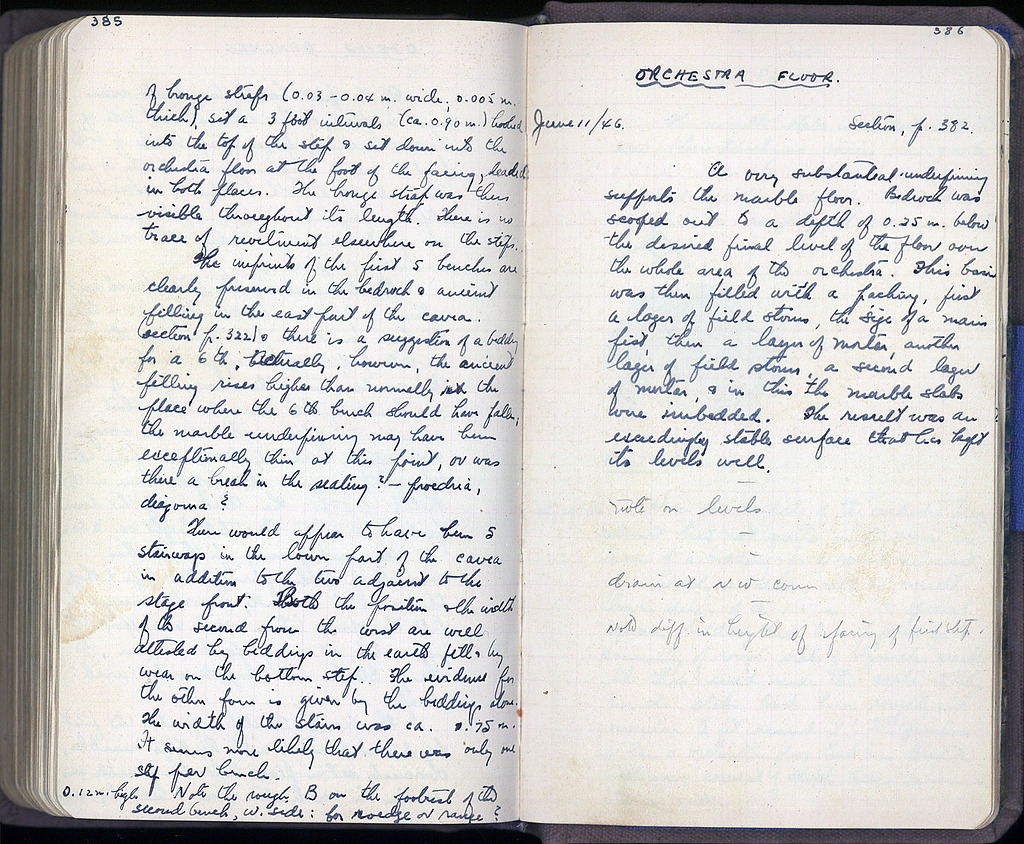 385
of bronze straps (0.03-0.04 m. wide, 0.005 m.
thick), set a 3 foot intervals (ca. 0.90 m.) hooked
into the top of the step & set down into the
orchestra floor at the foot of the facing, leaded
in both places. The bronze strap was thus
visible throughout its length. There is no
trace of revetment elsewhere on the steps.
The imprints of the first 5 benches are
clearly preserved in the bedrock & ancient
filling in the east part of the cavea.
(section p. 322) & there is a suggestion of a bedding
for a 6th. Actually, however, the ancient
filling rises higher than normally in the
place where the 6th bench should have fallen;
the marble underpinning may have been
exceptionally thin at this point, or was
there a break in the seating? - proedria,
diazoma?
There would appear to have been 5
stairways in the lower part of the cavea
in addition to the two adjacent to the
stage front. Both the position & the width
of the second from the west are well
attested by beddings in the earth fill & by
wear on the bottom step. The evidence for
the other four is given by the beddings alone.
The width of the stairs was ca. 0.75 m.
It seems more likely that there was only one
step per bench.
0.12 m. high Note the rough B on the footrest of the
second bench, w. side: for wedge or range?
386
ORCHESTRA FLOOR.
June 11/46. Section, p. 382.
A very substantial underpinning
supports the marble floor. Bedrock was
scooped out to a depth of 0.25 m. below
the desired final level of the floor over
the whole area of the orchestra. This basin
was then filled with a packing, first
a layer of field stones, the size of a man's
fist, then a layer of mortar, another
layer of field stones, a second layer
of mortar, & in this the marble slabs
were imbedded. The result was an
exceedingly stable surface that has kept
its levels well.
note on levels
drain at NW corner
Note diff in height of facing of first step.